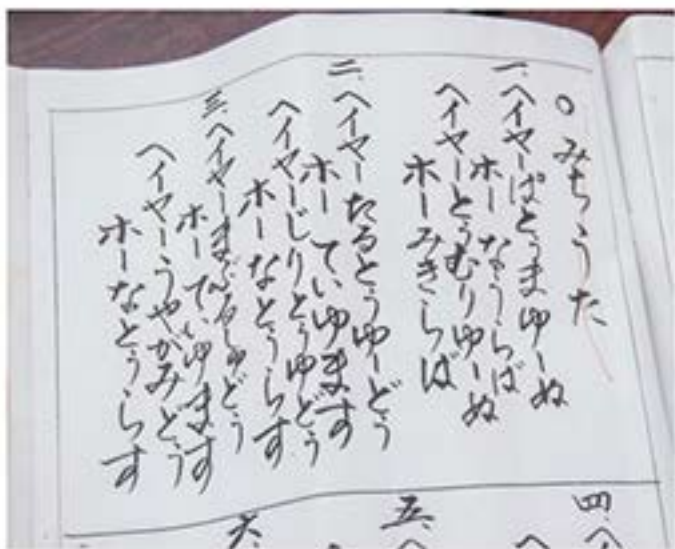 ○みちうた
一、ヘイヤーぱとぅまゆーぬ
ホーなうらば
ヘイヤーとぅむりゆーぬ
ホーみきらば
二、ヘイヤーたるとぅゆーどぅ
ホーてぃゆます
ヘイヤーじりとぅゆどぅ
ホーなとぅらす
三、ヘイヤーまぶるしゅどぅ
ホーてぃゆます
ヘイヤーうやがみどぅ
ホーなとぅらす
四、ヘイ
ヘ
五、ヘ
六、